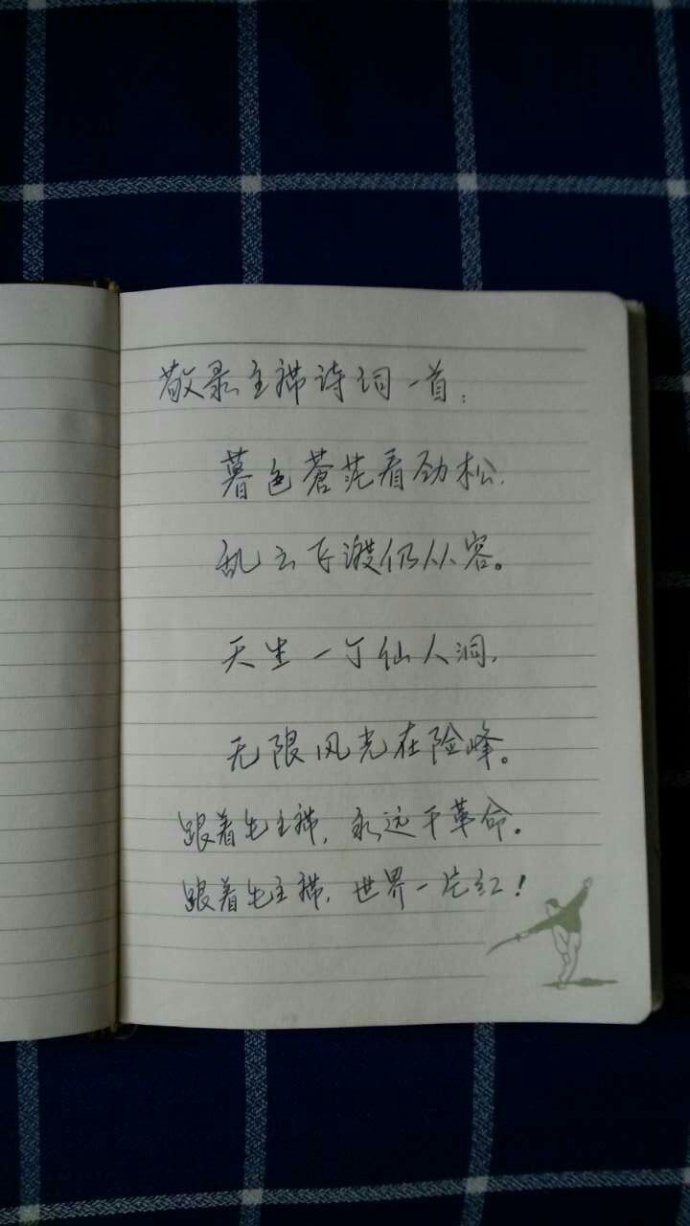 敬录主席诗词一首：
暮色苍茫看劲松，
乱云飞渡仍从容。
天生一个仙人洞，
无限风光在险峰。
跟着毛主席，永远干革命。
跟着毛主席，世界一片红！